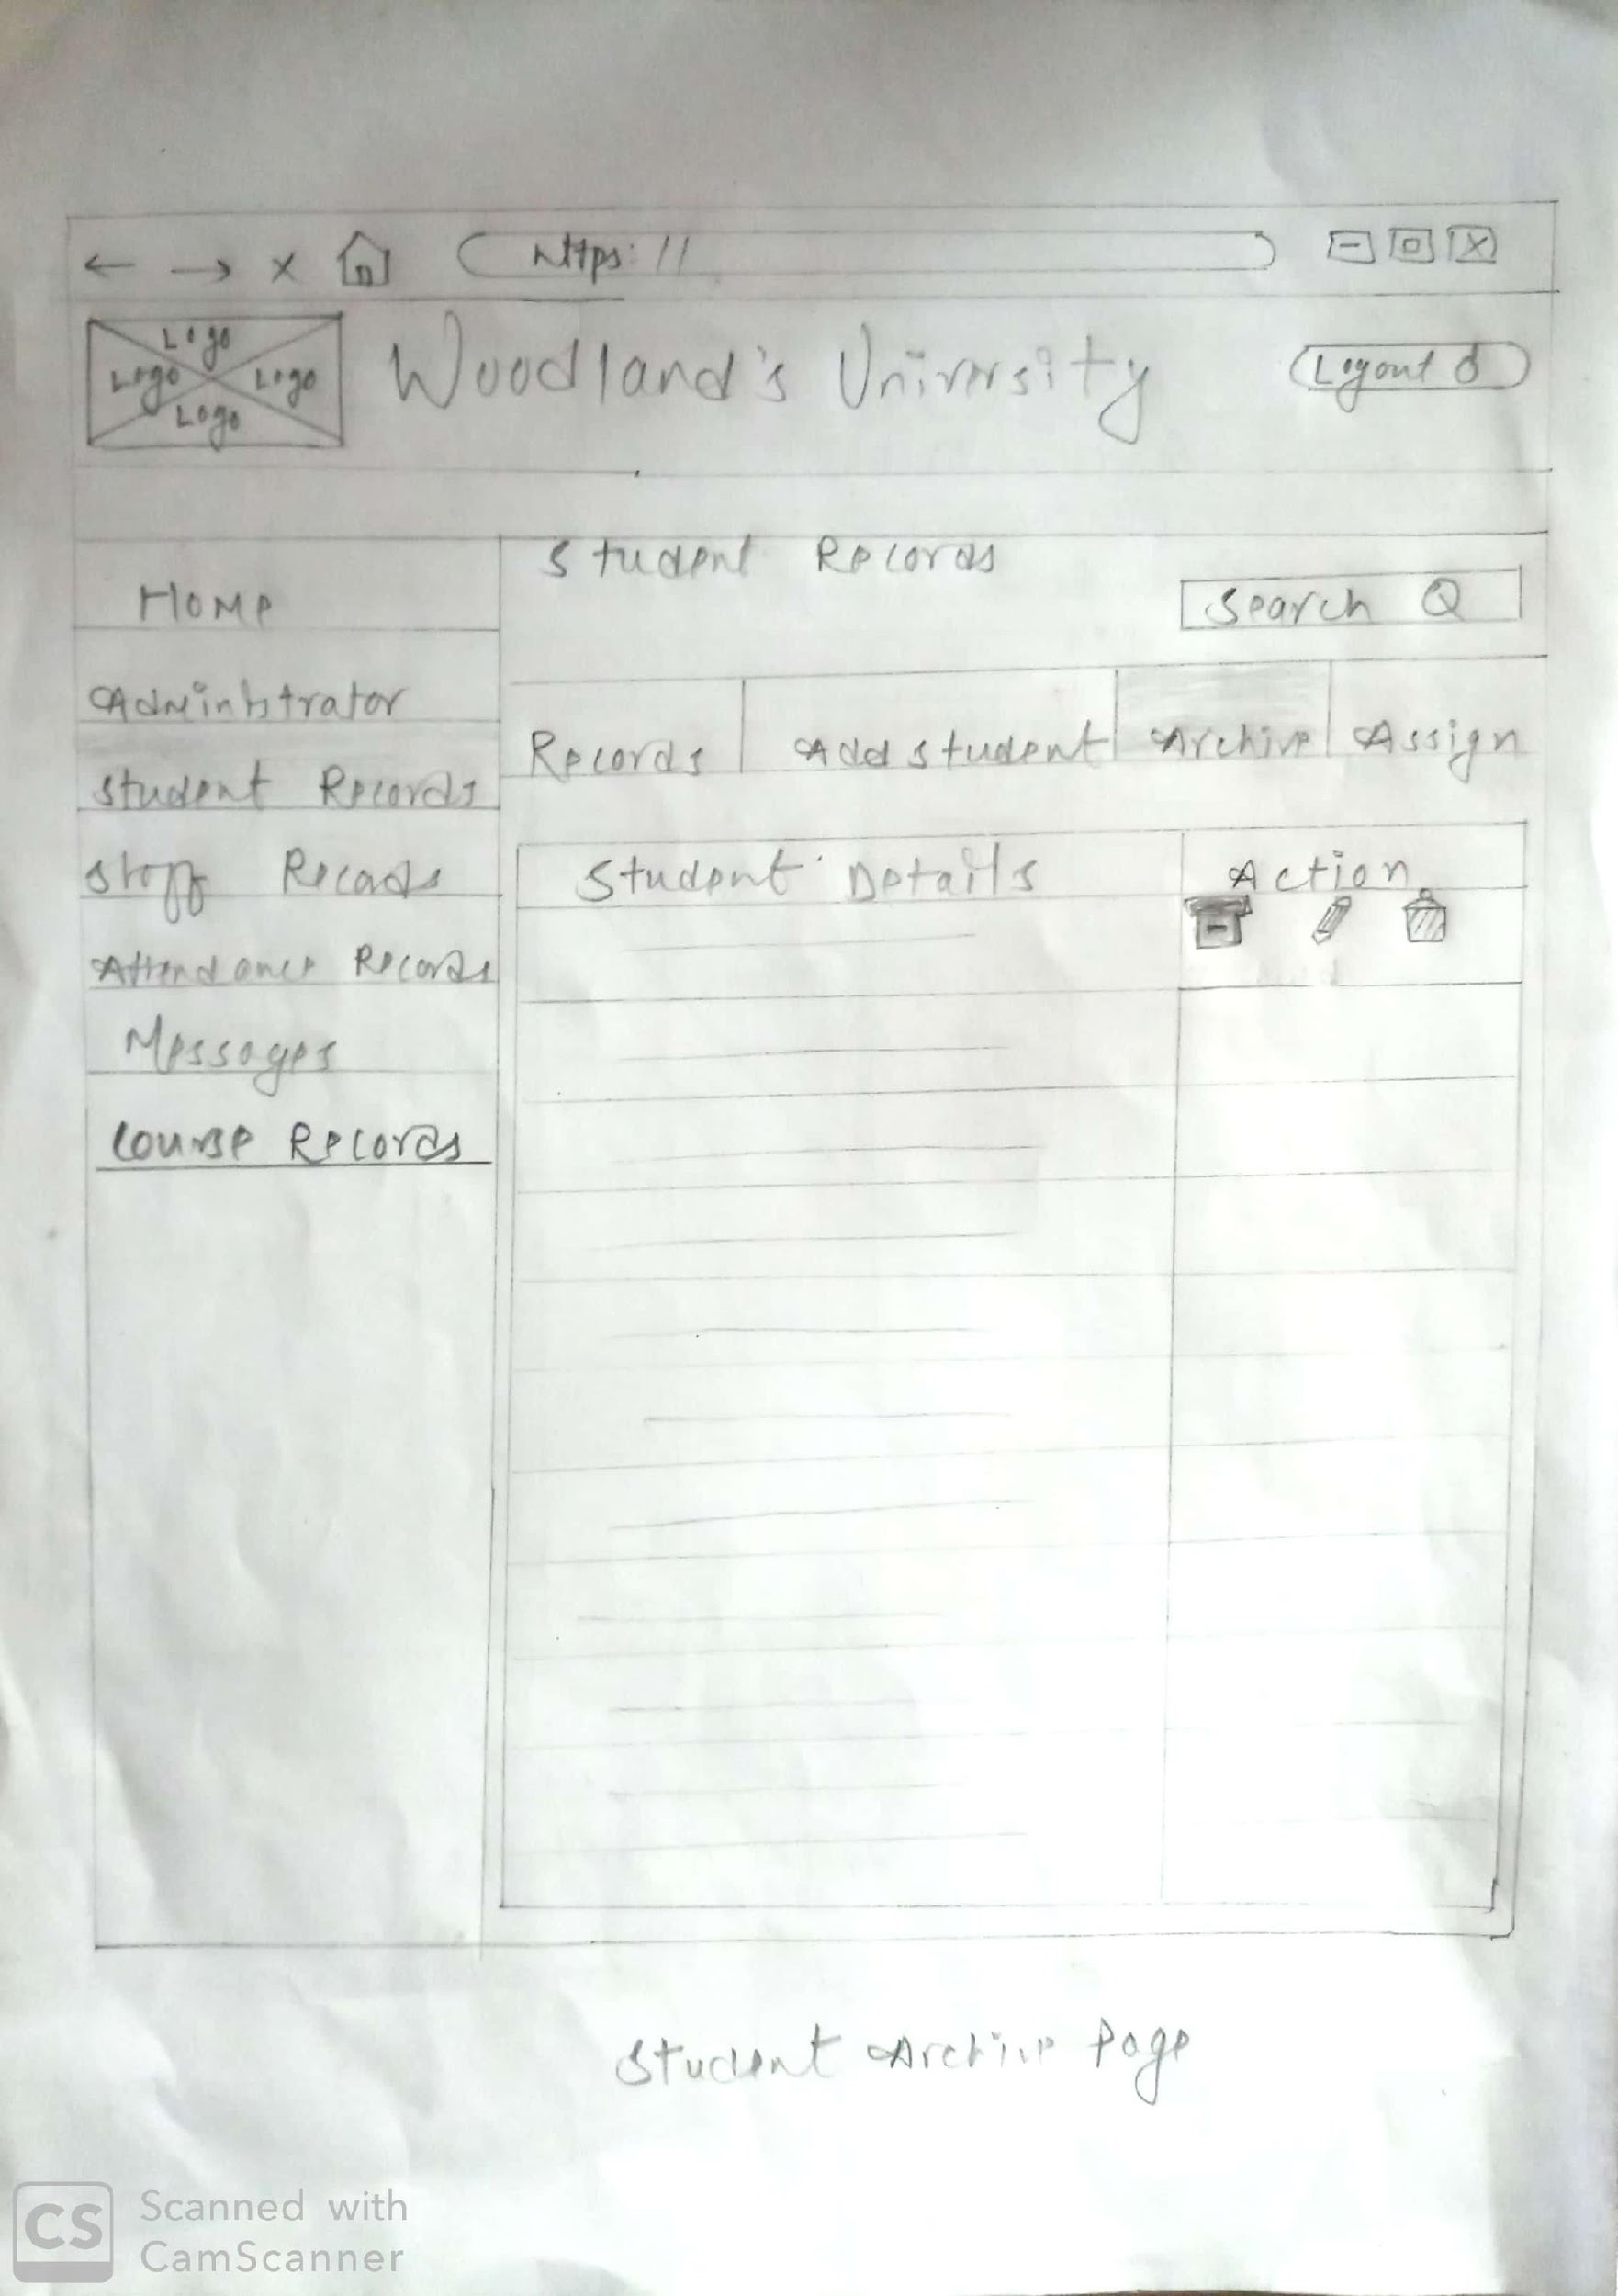 https://
Logo
Logo Logo
Logo
Woodland's University
Logout
Student Records
Search
Home
Administrator
Student Records
Staff Records
Attendance Records
Messages
Course Records
Records Add student Archive Assign
Student Details Action
Student Archive Page
CS Scanned with
CamScanner